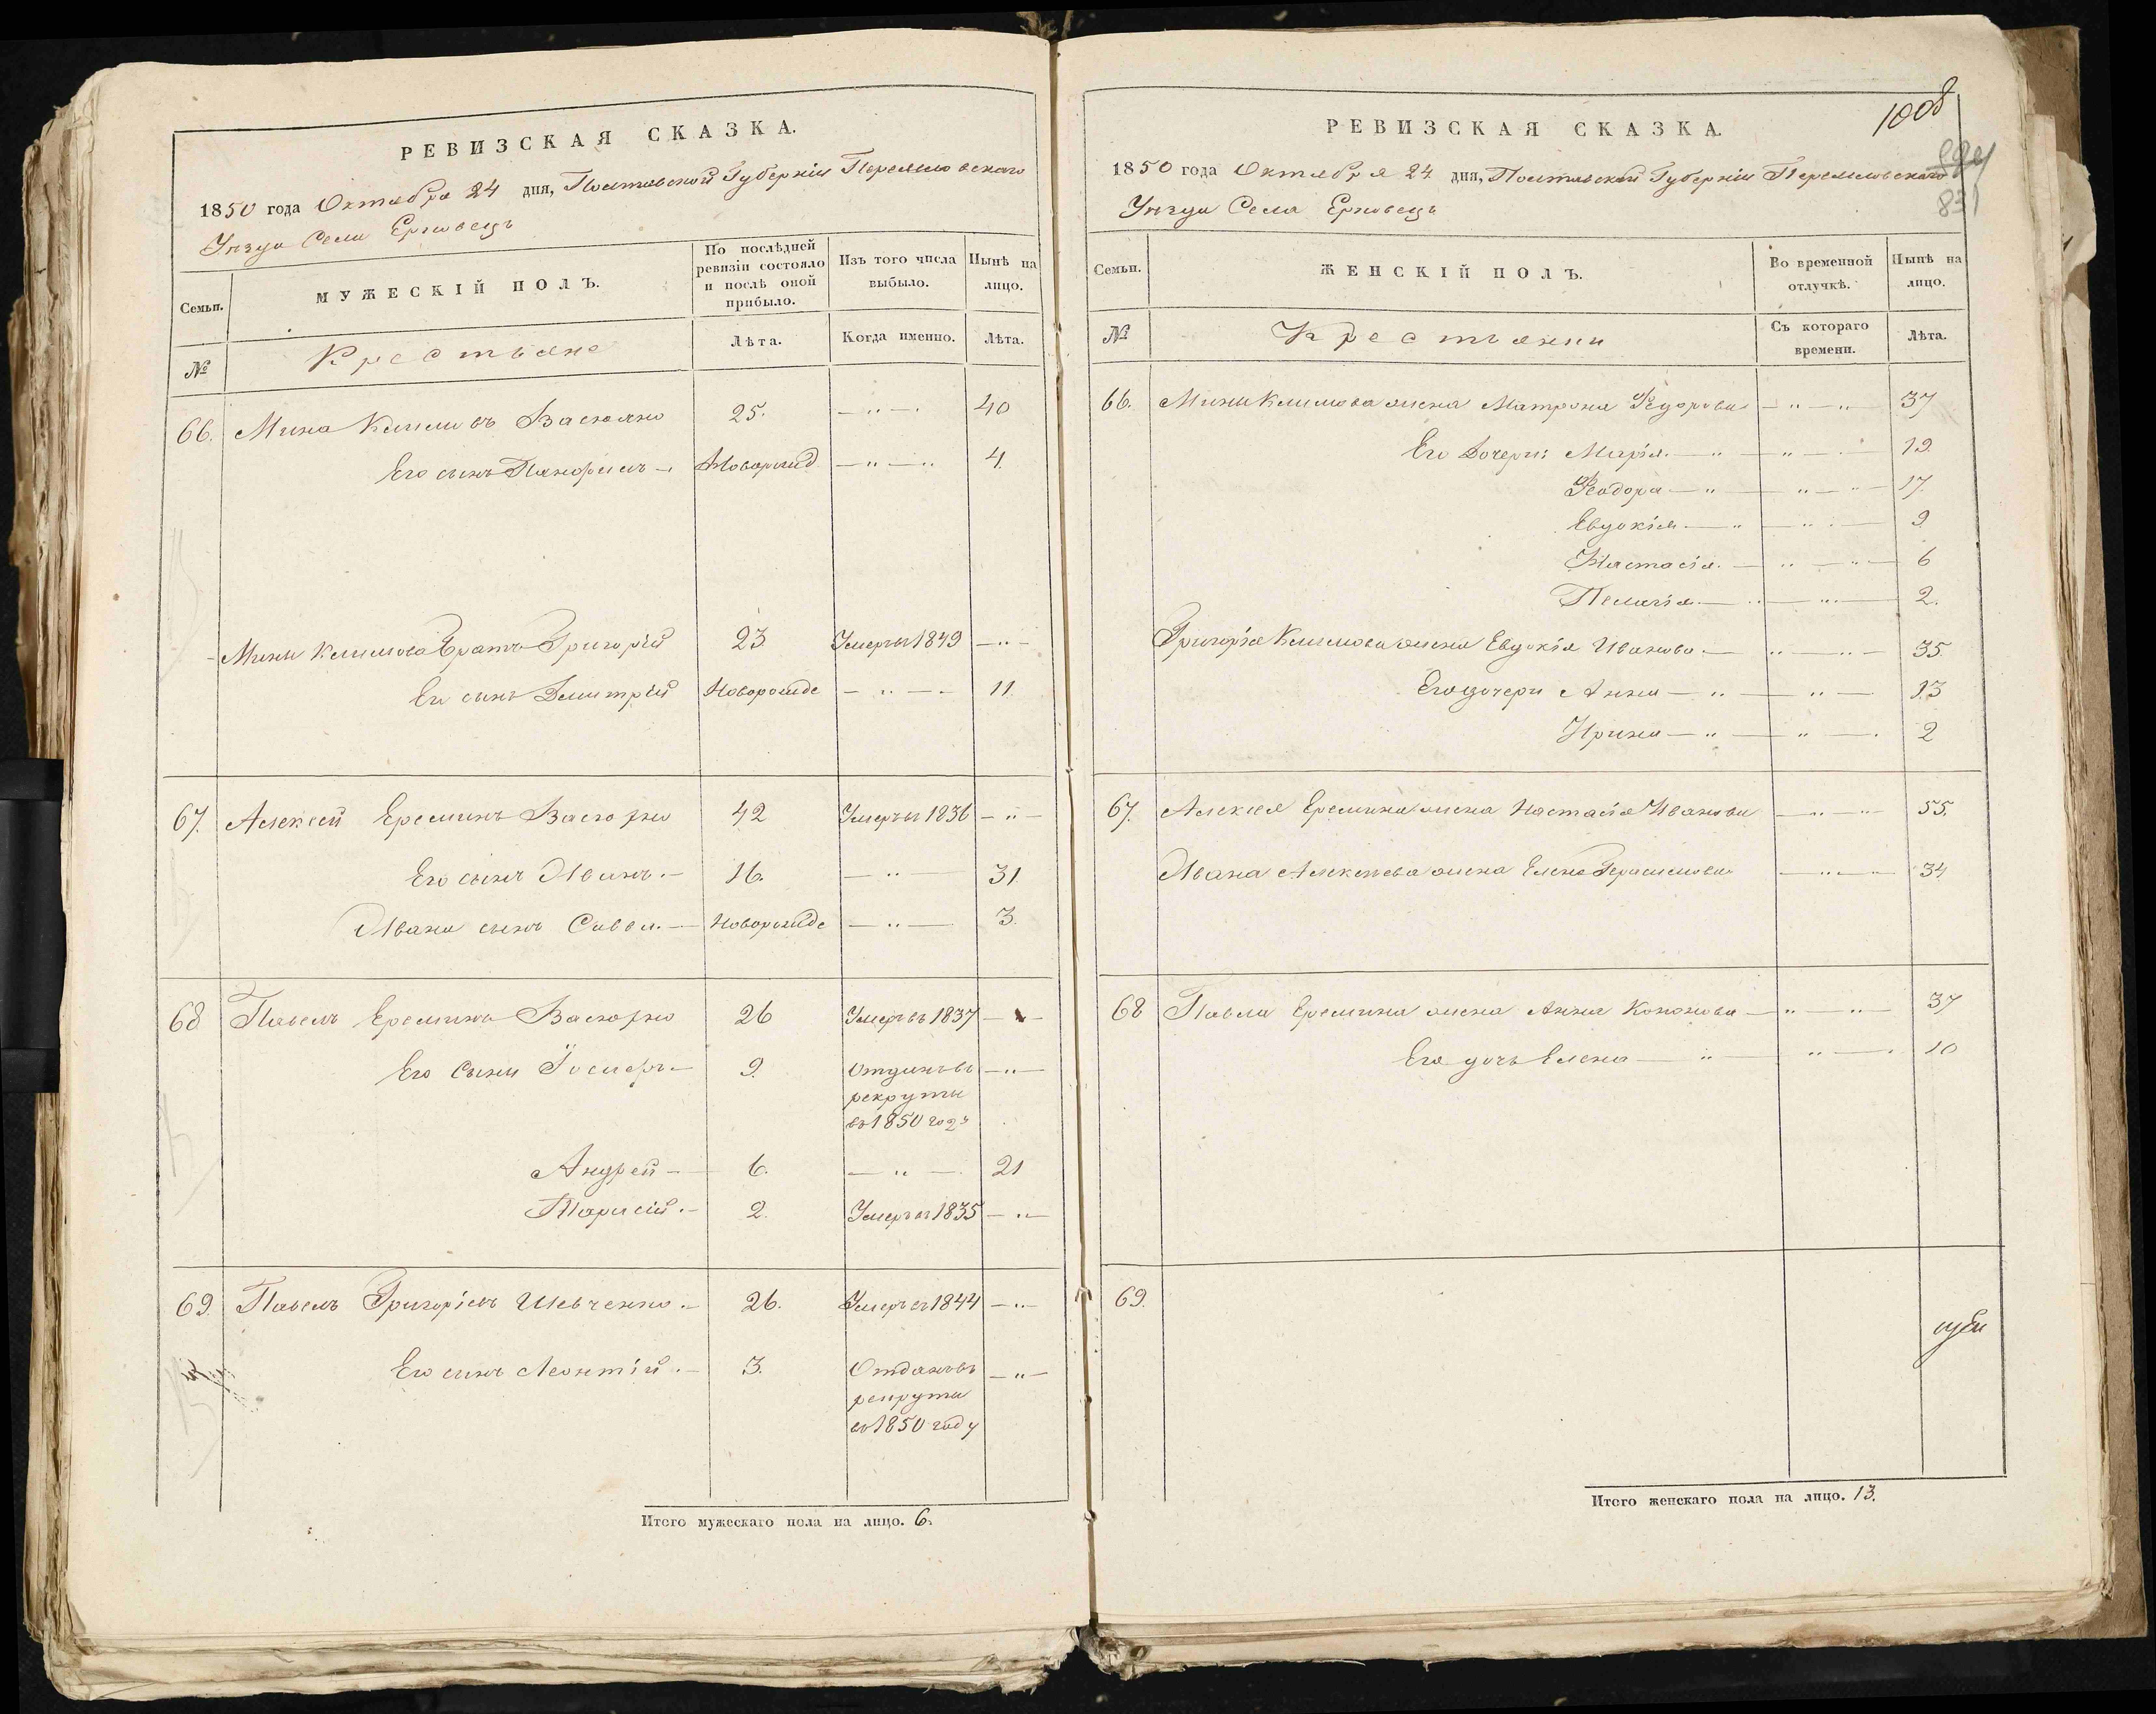 РЕВИЗСКАЯ СКАЗКА.
1850 года Октября 24 дня, Полтавской Губерніи Переяславскаго
Уѣзда Села Ерковецъ
Семьи.
МУЖЕСКІЙ ПОЛЪ.
По послѣдней ревизіи состояло и послѣ оной прибыло.
Изъ того числа выбыло.
Нынѣ на лицо.
№
Крестьяне
Лѣта.
Когда именно.
Лѣта.
66. Мина Климовъ 25. — „ — 40
Его сынъ — Новорожд — „ — „ 4.
Мины Климова Братъ Григорій 23. Умеръ въ 1849 — „ —
Его сынъ Дмитрій Новорожде — „ — 11.
67. Алексей Ереминъ 42 Умеръ въ 1836 — „ —
Его сынъ Иванъ. — 16. — „ — 31
Ивана сынъ Савва. — Новорожде — „ — 3.
68 Павелъ Ереминъ 26 Умеръ въ 1837 —
Его Сыны — 9. Отданъ въ — „ —
рекруты
въ 1850 году
Андрей — 6. — „ — 21
2. Умеръ въ 1835 — „ —
69. Павелъ Григоріевъ Шевченко. — 26. Умеръ въ 1844 — „ —
Его сынъ Леонтій. — 3. Отданъ въ — „ —
рекруты
въ 1850 году
Итого мужескаго пола на лицо. 6.
1008
РЕВИЗСКАЯ СКАЗКА.
1850 года Октября 24 дня, Полтавской Губерніи Переяславскаго
831
Уѣзда Села Ерковецъ
Семьи.
ЖЕНСКІЙ ПОЛЪ.
Во временной отлучкѣ.
Нынѣ на лицо.
№
Крестьянки
Съ котораго времени.
Лѣта.
66. Мины Климова жена Матрона Федорова — „ — „ 37
Его Дочери: Марія. — „ — „ — 19.
Феодора — „ — „ — „ — 17.
Евдокія — „ — „ — 9
Настасія. — „ — „ — 6
Пелагія — „ — „ — 2.
Григорія Климова жена Евдокія Иванова. — „ — „ — 35.
Его дочери Анна — „ — „ — 13
Ирина — „ — „ — 2
67. Алексея Еремина жена Настасія Иванова — „ — „ 55.
Ивана Алексеева жена Елена Герасимова — „ — 34
68 Павла Еремина жена Анна Кононова — „ — „ — 37
Его дочь Елена — „ — „ — 10
69.
Итого женскаго пола на лицо. 13.